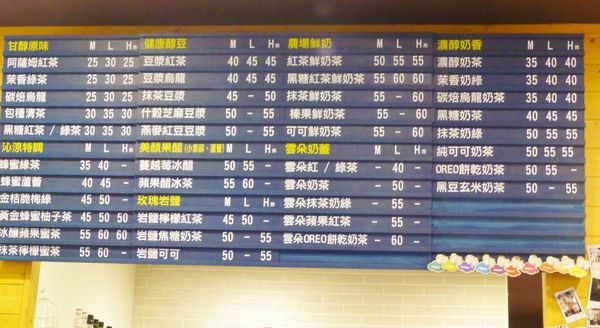 甘醇原味 M L Hm
阿薩姆紅茶 25 30 25
茉香綠茶 25 30 25
碳焙烏龍 25 30 25
包種清茶 30 35 30
黑糖紅茶 / 綠茶 30 35 30
沁涼特調 M L Hm
蜂蜜綠茶 35 40 -
蜂蜜蘆薈 40 45 -
金桔脆梅綠 45 50 50
黃金蜂蜜柚子茶 45 50 50
冰釀蘋果蜜茶 55 60 60
抹茶檸檬蜜茶 55 60 -
健康醇豆 M L Hm
豆漿紅茶 40 45 45
豆漿烏龍 40 45 45
抹茶豆漿 45 - 50
什穀芝麻豆漿 50 - 55
燕麥紅豆豆漿 50 - 55
美顏果醋(小紫蘇、蘆薈) M L Hm
蔓越莓冰醋 50 55 -
蘋果醋冰茶 55 60 -
玫瑰岩鹽 M L Hm
岩鹽檸檬紅茶 45 50 -
岩鹽焦糖奶茶 50 - 55
岩鹽可可 50 - 55
農場鮮奶 M L Hm
紅茶鮮奶茶 50 55 55
黑糖紅茶鮮奶茶 55 60 60
抹茶鮮奶茶 55 - 60
榛果鮮奶茶 55 - 60
可可鮮奶茶 55 - 60
雲朵奶蓋 M L Hm
雲朵紅 / 綠茶 - 40 -
雲朵奶茶 - 50 -
雲朵抹茶奶綠 - 55 -
雲朵蘋果紅茶 - 55 -
雲朵OREO餅乾奶茶 - 60 -
濃醇奶香 M L Hm
濃醇奶茶 35 40 40
茉香奶綠 35 40 40
碳焙烏龍奶茶 35 40 40
黑糖奶茶 40 45 45
抹茶奶綠 50 55 55
純可可奶茶 50 55 55
OREO餅乾奶茶 50 55 -
黑豆玄米奶茶 50 - 55